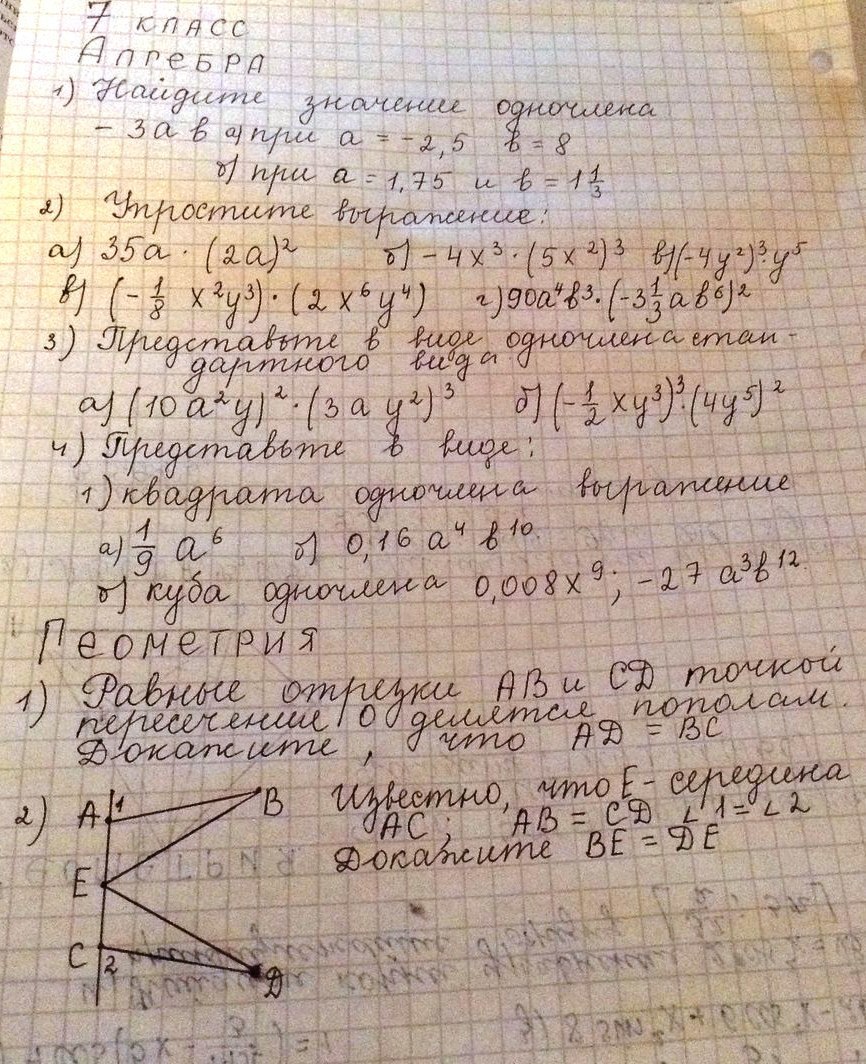 7 класс
Алгебра
1) Найдите значение одночлена
- 3ав а) при а = -2,5 в = 8
б) при а = 1,75 и в = 1 1/3
2) Упростите выражение:
а) 35а · (2а)² б) -4x³ · (5x²)³ в) (-4y²)³ · y⁵
в) (-1/8 x²y³) · (2x⁶y⁴) г) 90а⁴в³ · (-3 1/3 ав⁶)²
3) Представьте в виде одночлена стан-
дартного вида
а) (10а²y)² · (3аy²)³ б) (-1/2 xy³)³ · (4y⁵)²
4) Представьте в виде:
1) квадрата одночлена выражение
а) 1/9 а⁶ б) 0,16 а⁴ в¹⁰.
б) куба одночлена 0,008x⁹; -27 а³в¹².
Геометрия
1) Равные отрезки AB и CD точкой
пересечения О делятся пополам.
Докажите, что AD = BC
2) A 1 B Известно, что E - середина
AC; AB = CD ∠1 = ∠2
Докажите BE = DE
E
C 2 D